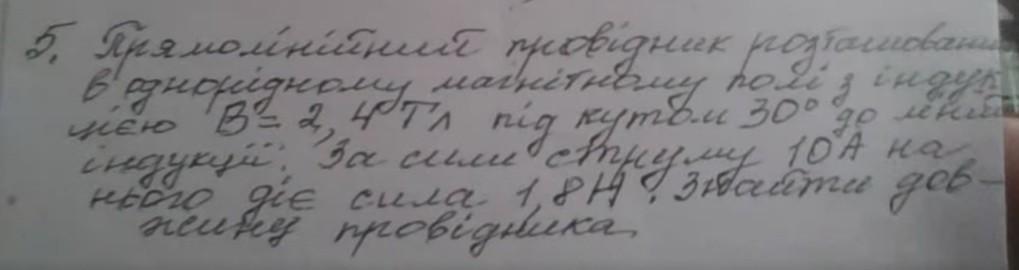 5. Прямолінійний провідник розташовани
в однорідному магнітному полі з індук
цією В = 2,4 Тл під кутом 30° до ліній
індукції. За сили струму 10А на
нього діє сила 1,8Н. Знайти дов-
жину провідника.